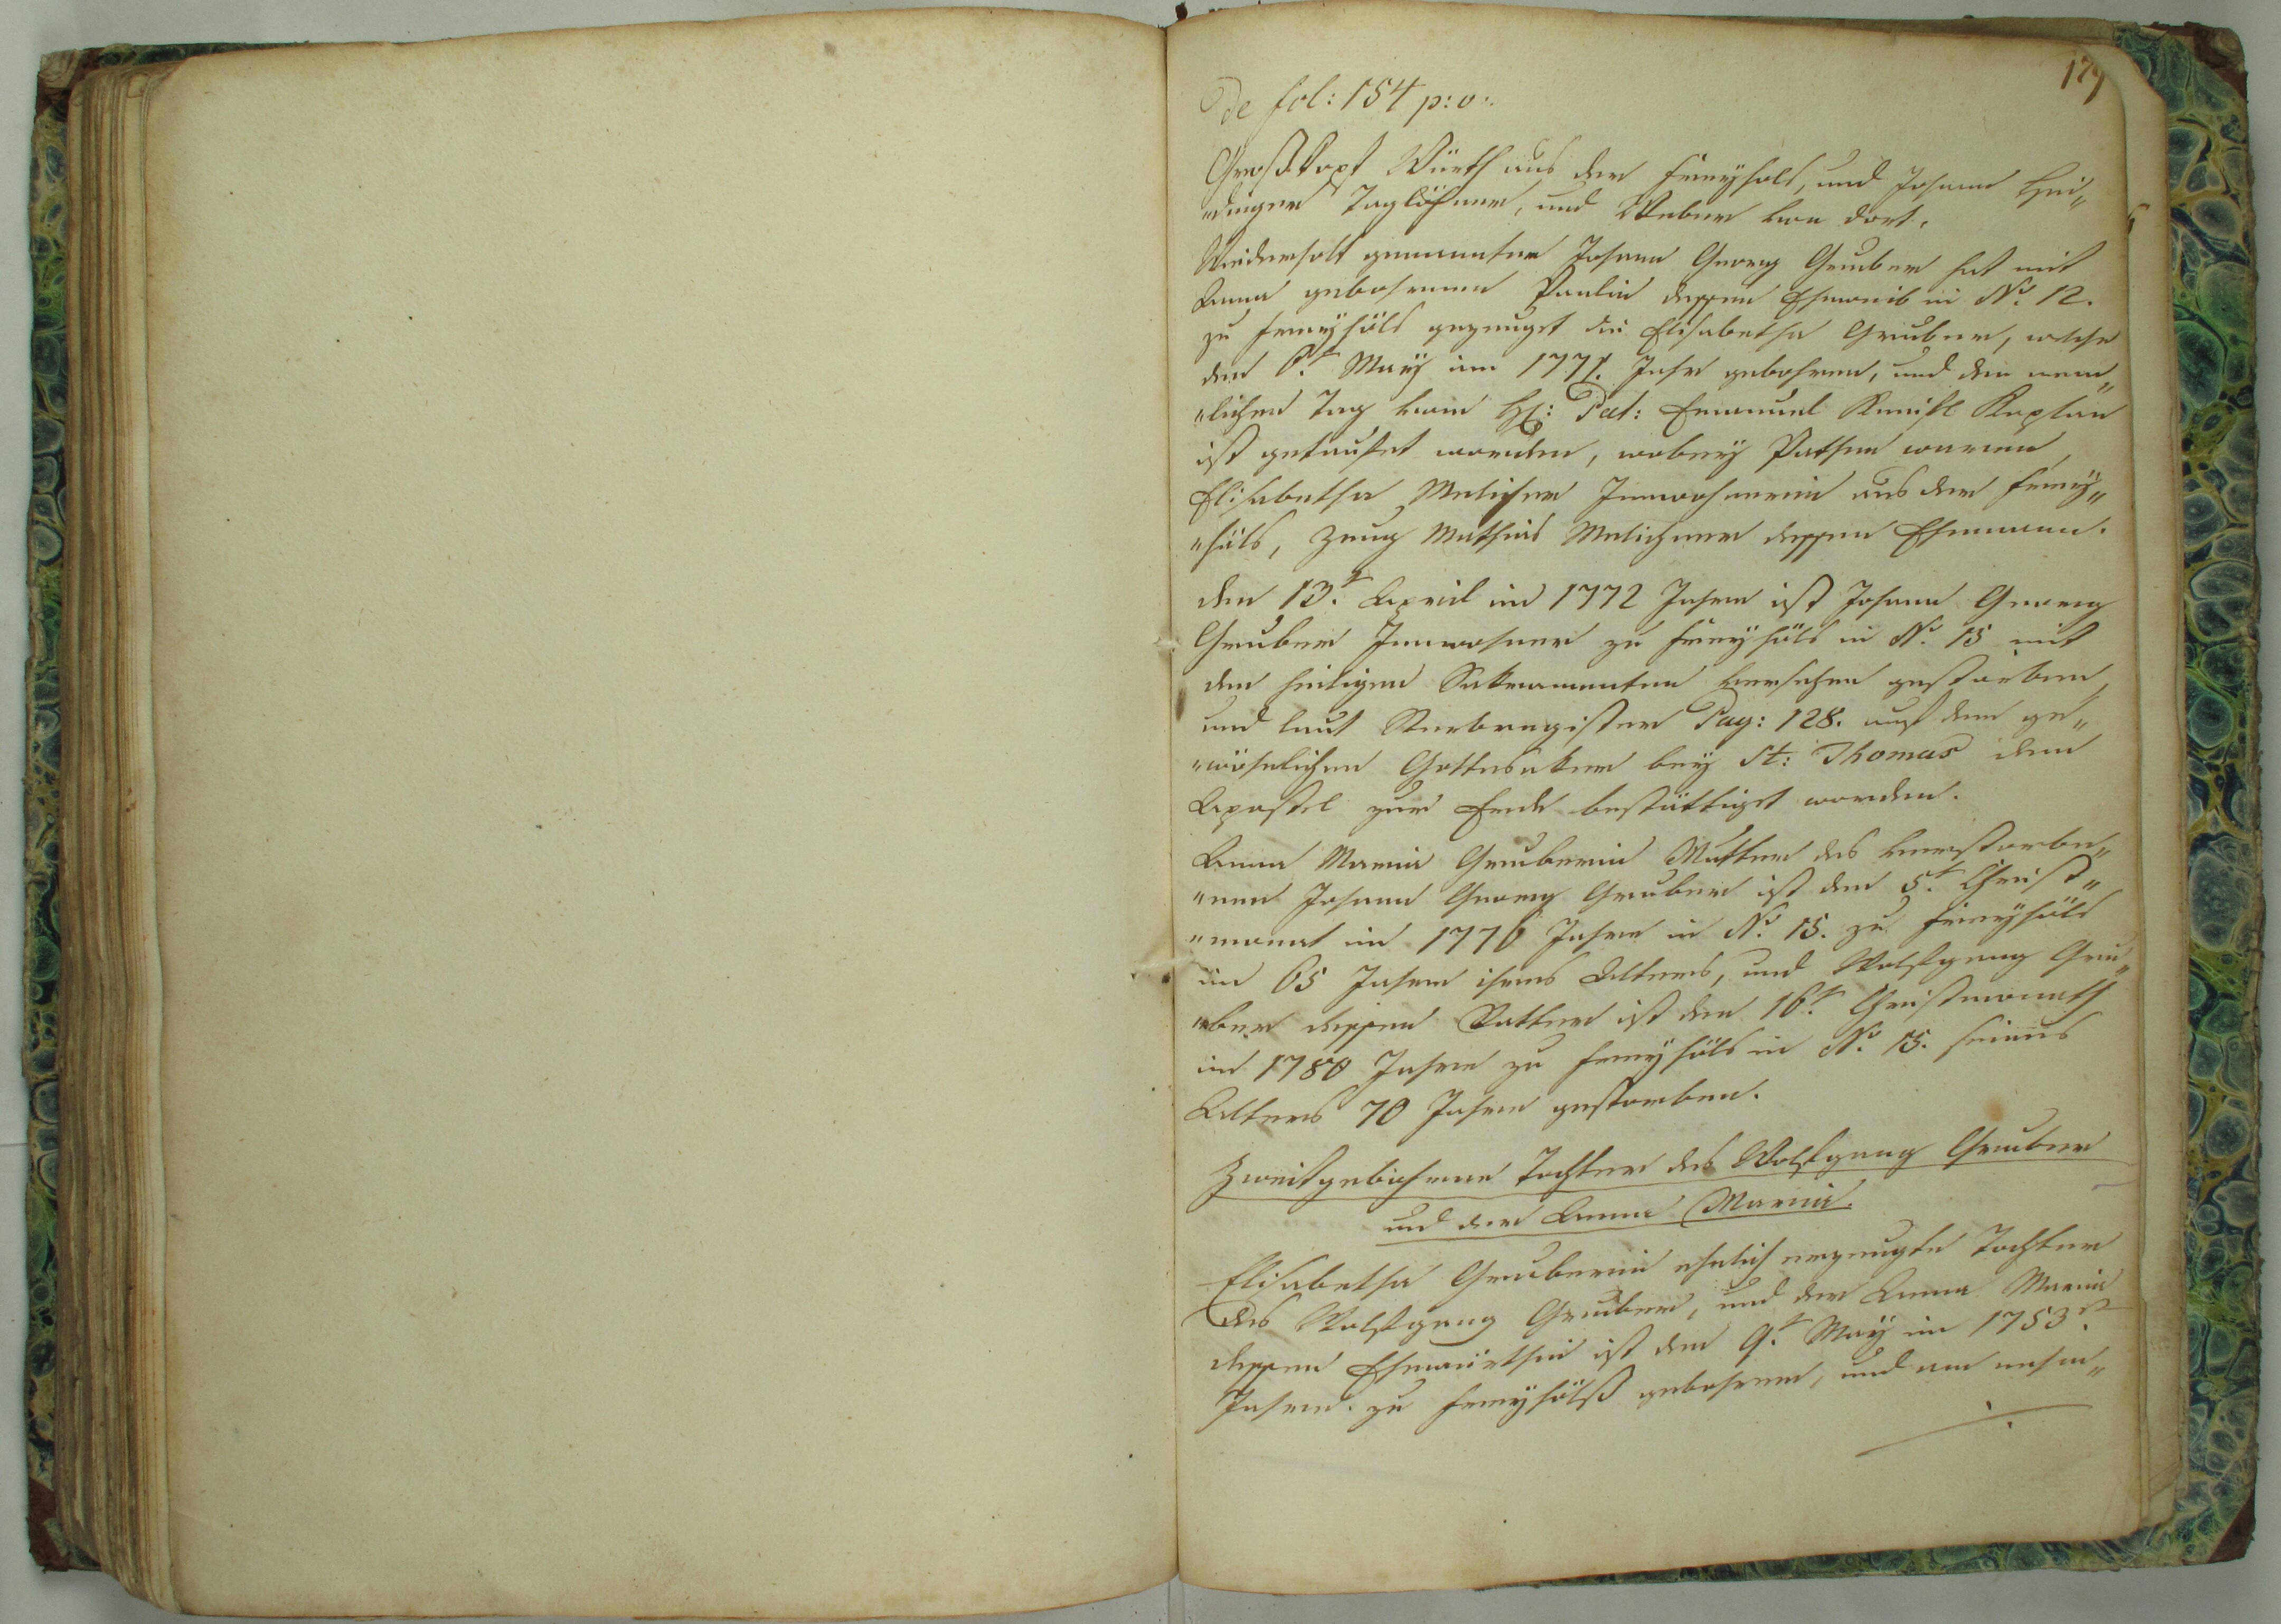 179
De fol: 154 p: v:
Großkopf Würth aus der Freyhols, und Johann Hei„
„dinger Taglöhner, und Weber von dort.
Wiederholt genannter Johann Georg Gruber hat mit
Anna gebohrnen Paulin dessen Eheweib in No. 12.
zu Freyhöls gezeuget die Elisabetha Gruber, welche
den 6.t May im 1771. Jahr gebohren, und den nem„
„lichen Tag vom H: Pat: Emanuel Kaplan
ist getaufet worden, wobey Pathen waren
Elisabetha Melicher Innwohnerin aus der Frey„
„höls, Zeug Mathias Melichner dessen Ehemann.
den 13.t April im 1772 Jahre ist Johann Georg
Gruber Innwohner zu Freyhöls in No. 15 mit
den heiligen Sakramenten versehen gestorben,
und laut Sterbregister Pag: 128. auf dem ge„
„wöhnlichen Gottesaker bey St: Thomas dem
Apostel zur Erde bestättiget worden.
Anna Maria Gruberin Mutter des verstorbe„
„nen Johann Georg Gruber ist den 5.t Christ„
„monat im 1776 Jahre in No. 15. zu Freyhöls
im 65 Jahre ihres Alters, und Wolfgang Gru„
„ber dessen Vatter ist den 16.t Christmonath
im 1780 Jahre zu Freyhöls in No. 15. seines
Alters 70 Jahre gestorben.
Zweitgebohrene Tochter des Wolfgang Gruber
und der Anna Maria.
Elisabetha Gruberin ehelich erzeugte Tochter
des Wolfgang Gruber, und der Anna Maria
dessen Ehewürthin ist den 9.t May im 1753.t
Jahre zu Freyhölß gebohren, und am nehm„